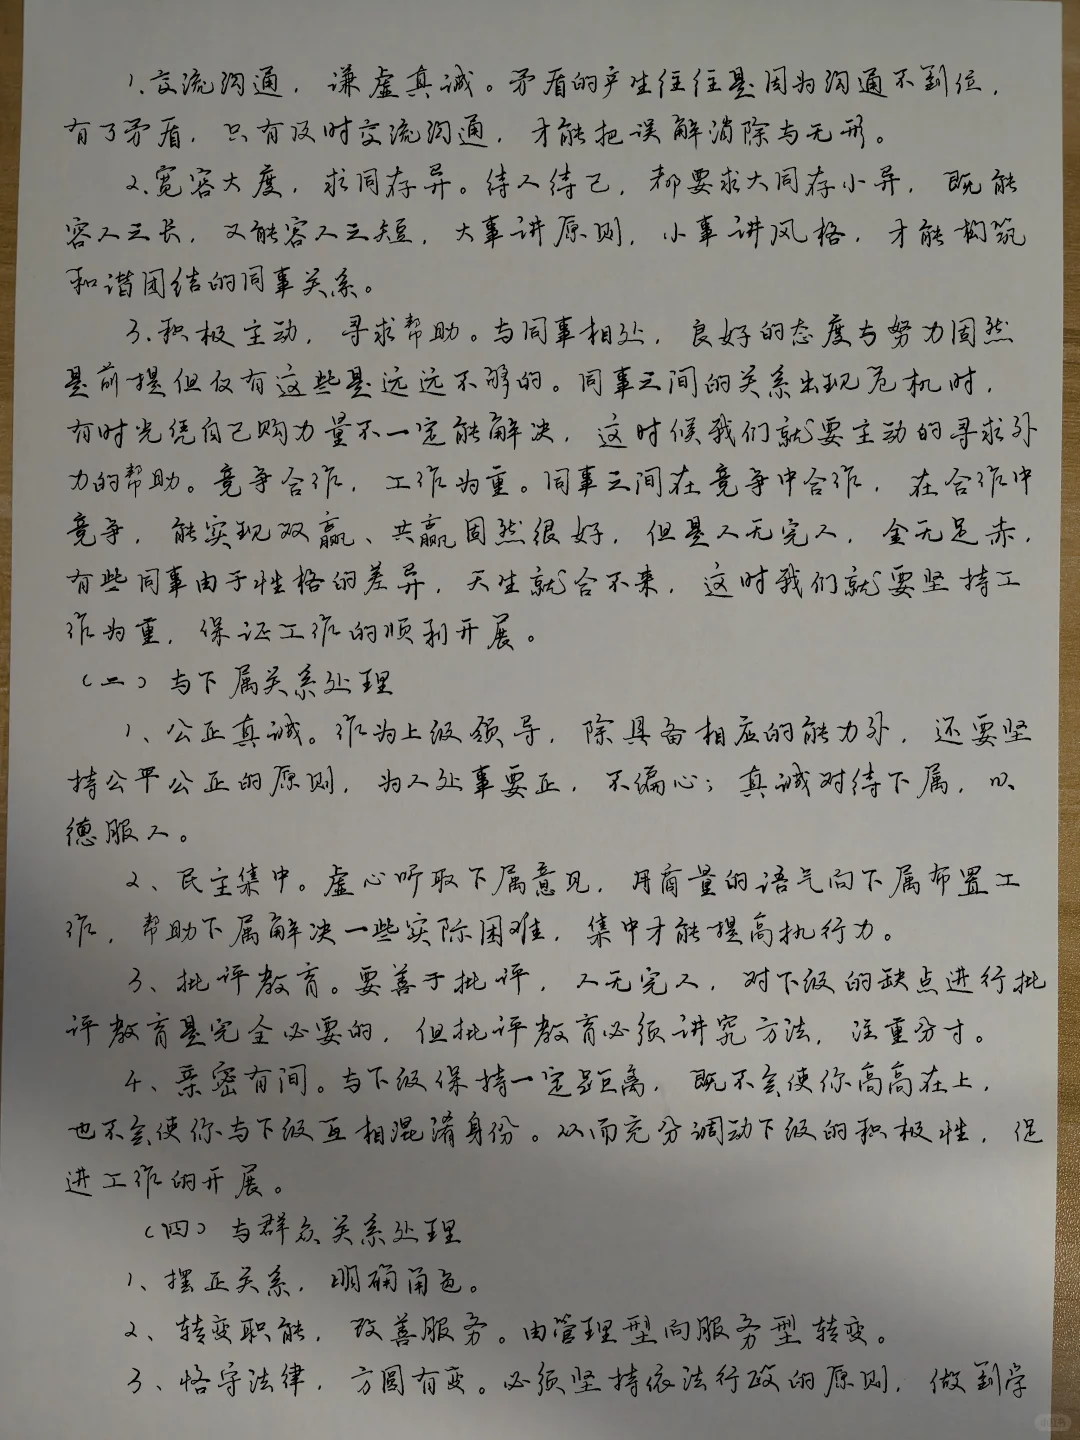 1.交流沟通，谦虚真诚。矛盾的产生往往是因为沟通不到位，
有了矛盾，只有及时交流沟通，才能把误解消除与无形。
2.宽容大度，求同存异。待人待己，都要求大同存小异，既能
容人之长，又能容人之短，大事讲原则，小事讲风格，才能构筑
和谐团结的同事关系。
3.积极主动，寻求帮助。与同事相处，良好的态度与努力固然
是前提但仅有这些是远远不够的。同事之间的关系出现危机时，
有时光凭自己购力量不一定能解决，这时候我们就要主动的寻求外
力的帮助。竞争合作，工作为重。同事之间在竞争中合作，在合作中
竞争，能实现双赢、共赢固然很好，但是人无完人，金无足赤，
有些同事由于性格的差异，天生就合不来，这时我们就要坚持工
作为重，保证工作的顺利开展。
（二）与下属关系处理
1、公正真诚。作为上级领导，除具备相应的能力外，还要坚
持公平公正的原则，为人处事要正，不偏心；真诚对待下属，以
德服人。
2、民主集中。虚心听取下属意见，用商量的语气向下属布置工
作，帮助下属解决一些实际困难，集中才能提高执行力。
3、批评教育。要善于批评，人无完人，对下级的缺点进行批
评教育是完全必要的，但批评教育必须讲究方法，注重分寸。
4、亲密有间。与下级保持一定距离，既不会使你高高在上，
也不会使你与下级互相混淆身份。从而充分调动下级的积极性，促
进工作的开展。
（四）与群众关系处理
1、摆正关系，明确角色。
2、转变职能，改善服务。由管理型向服务型转变。
3、恪守法律，方圆有变。必须坚持依法行政的原则，做到学
小红书